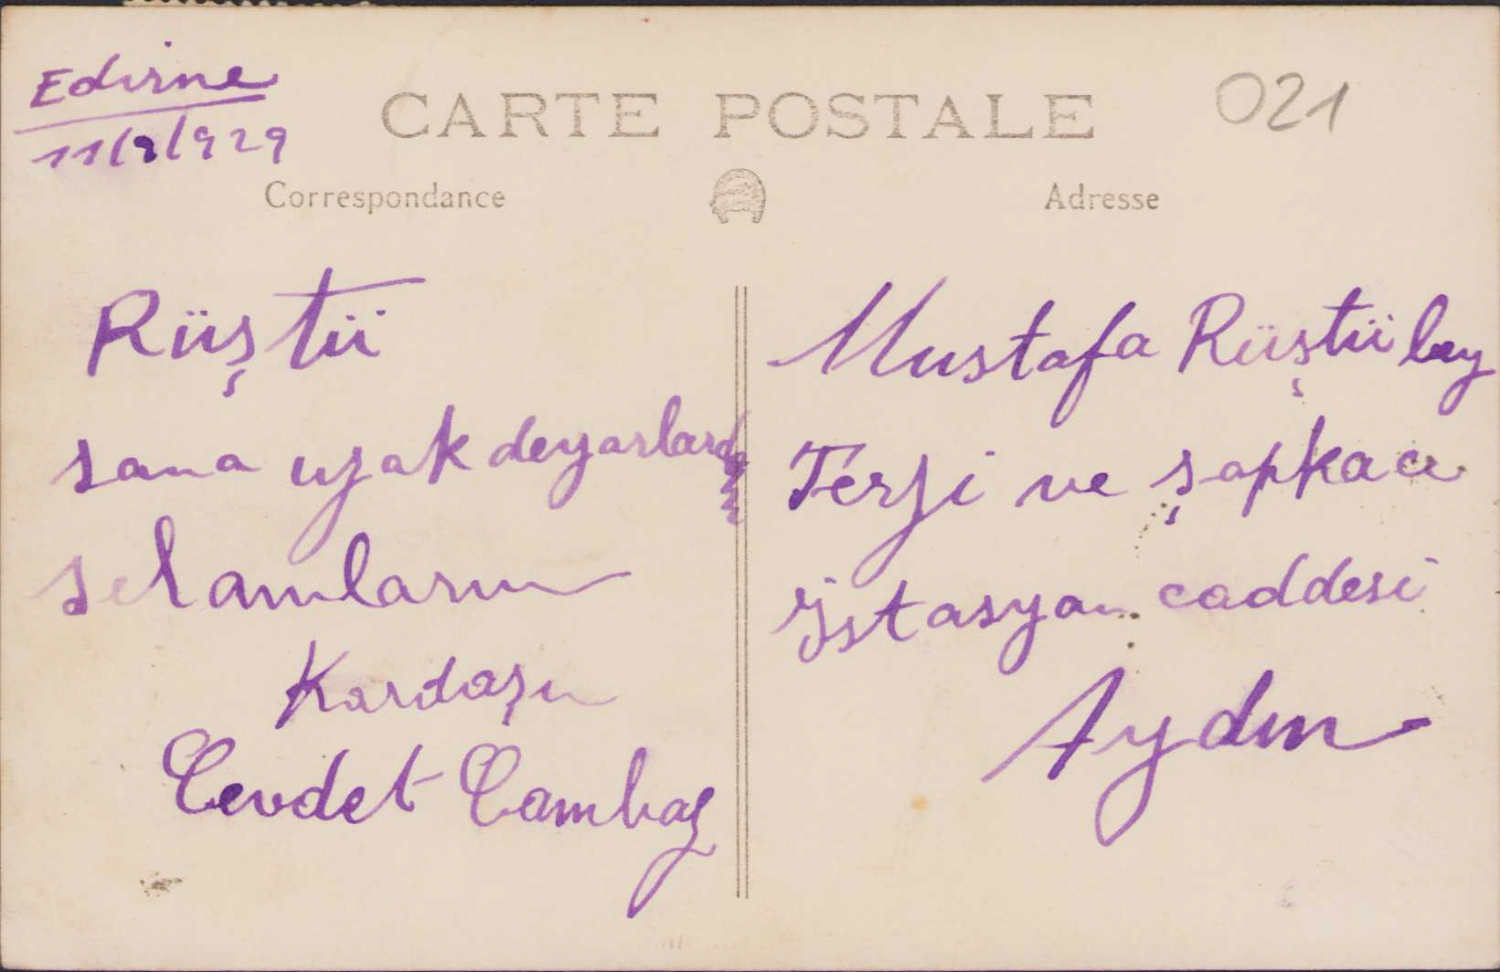 Edirne
11/8/929
CARTE POSTALE
021
Correspondance
Adresse
Rüştü
sana uzak deyarlardan
selamlarım
Kardaşın
Cevdet Cambaz
Mustafa Rüştü bey
Terzi ve şapkacı
İstasyon caddesi
Aydın